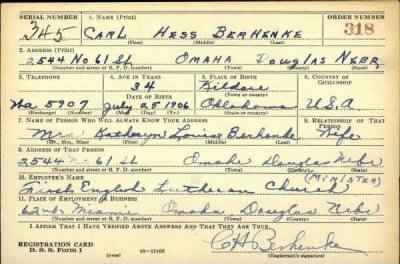 SERIAL NUMBER 1. NAME (Print) ORDER NUMBER
345 CARL HESS BERHENKE 318
(First) (Middle) (Last)
2. ADDRESS (Print)
2544 No 61 St OMAHA Douglas NEBR
(Number and street or R. F. D. number) (Town) (County) (State)
3. TELEPHONE 4. AGE IN YEARS 5. PLACE OF BIRTH 6. COUNTRY OF CITIZENSHIP
34 Kildare
DATE OF BIRTH
Wa 5907 July 25 1906 Oklahoma U.S.A
(Exchange) (Number) (Mo.) (Day) (Yr.) (State or country)
7. NAME OF PERSON WHO WILL ALWAYS KNOW YOUR ADDRESS 8. RELATIONSHIP OF THAT PERSON
Mrs Kathryn Louise Berhenke Wife
(Mr., Mrs., Miss) (First) (Middle) (Last)
9. ADDRESS OF THAT PERSON
2544 No 61 St Omaha Douglas Nebr
(Number and street or R. F. D. number) (Town) (County) (State)
10. EMPLOYER'S NAME (MINISTER)
English Lutheran Church
11. PLACE OF EMPLOYMENT OR BUSINESS
Miami Omaha Douglas Nebr
(Number and street or R. F. D. number) (Town) (County) (State)
I AFFIRM THAT I HAVE VERIFIED ABOVE ANSWERS AND THAT THEY ARE TRUE.
REGISTRATION CARD
D. S. S. Form 1 16—17105 CH Berhenke
(Registrant's signature)